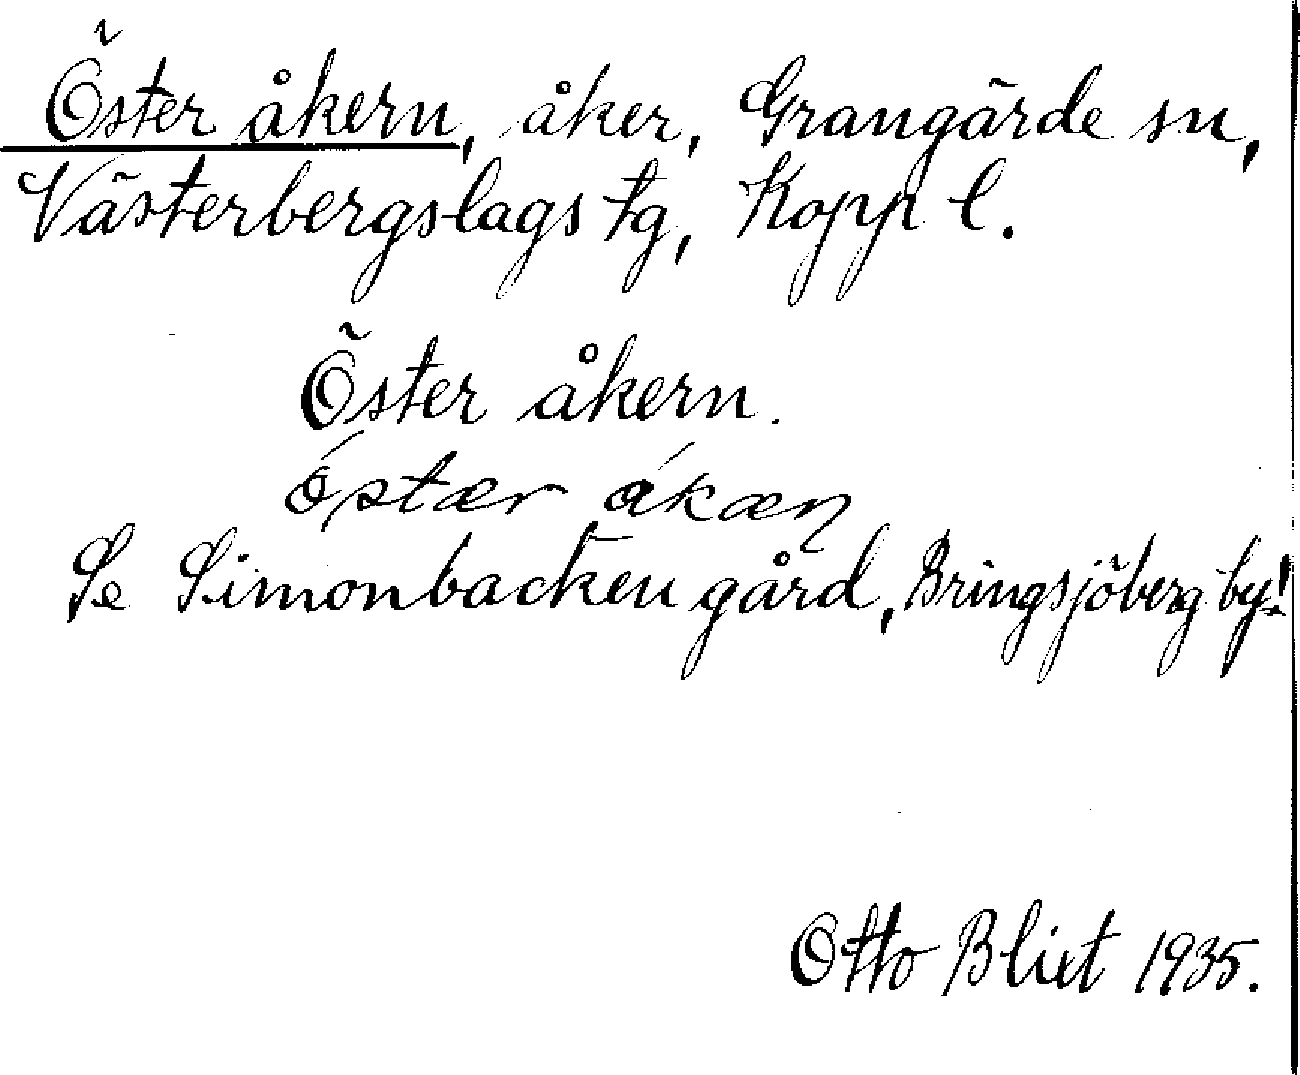 Öster åkern, åker, Grangärde sn,
Västerbergslags tg, Kopp l.
Öster åkern.
óstær åkæn
Se Simonbacken gård, Bringsjöberg by!
Otto Blixt 1935.